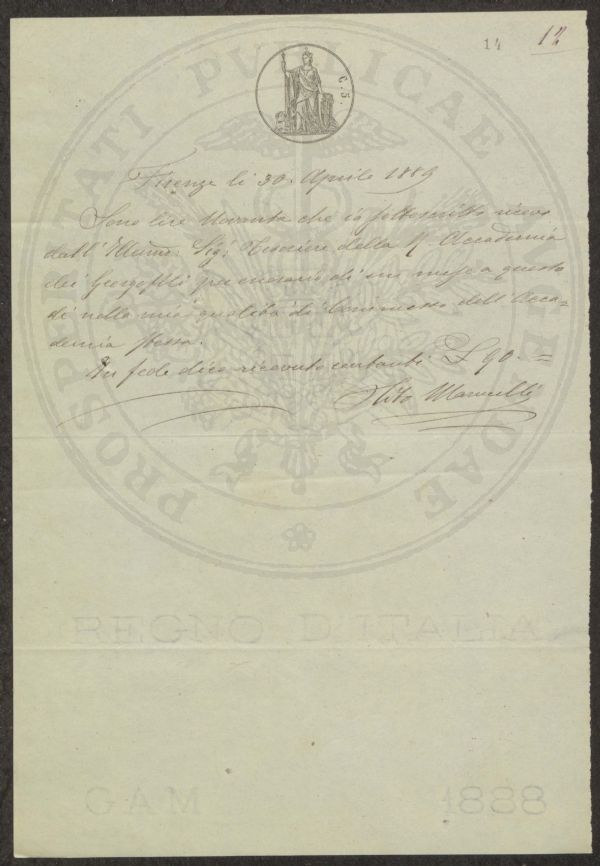 14 12
C. 5.
PROSPERITATI PVBLICAE AVGENDAE
Firenze li 30. Aprile 1889
Sono lire Novanta che io sottoscritto ricevo
dall' Illmo: Sig: Tesoriere della R. Accademia
dei Georgofili per onorario di un mese a questo
dì nella mia qualità di Commesso dell' Acca=
demia stessa.
In fede dico ricevuto contanti £ 90. =
Vito Marucelli
REGNO D'ITALIA
GAM 1888